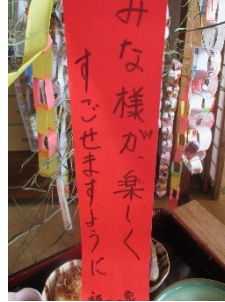 みな様が、楽しく
すごせますように